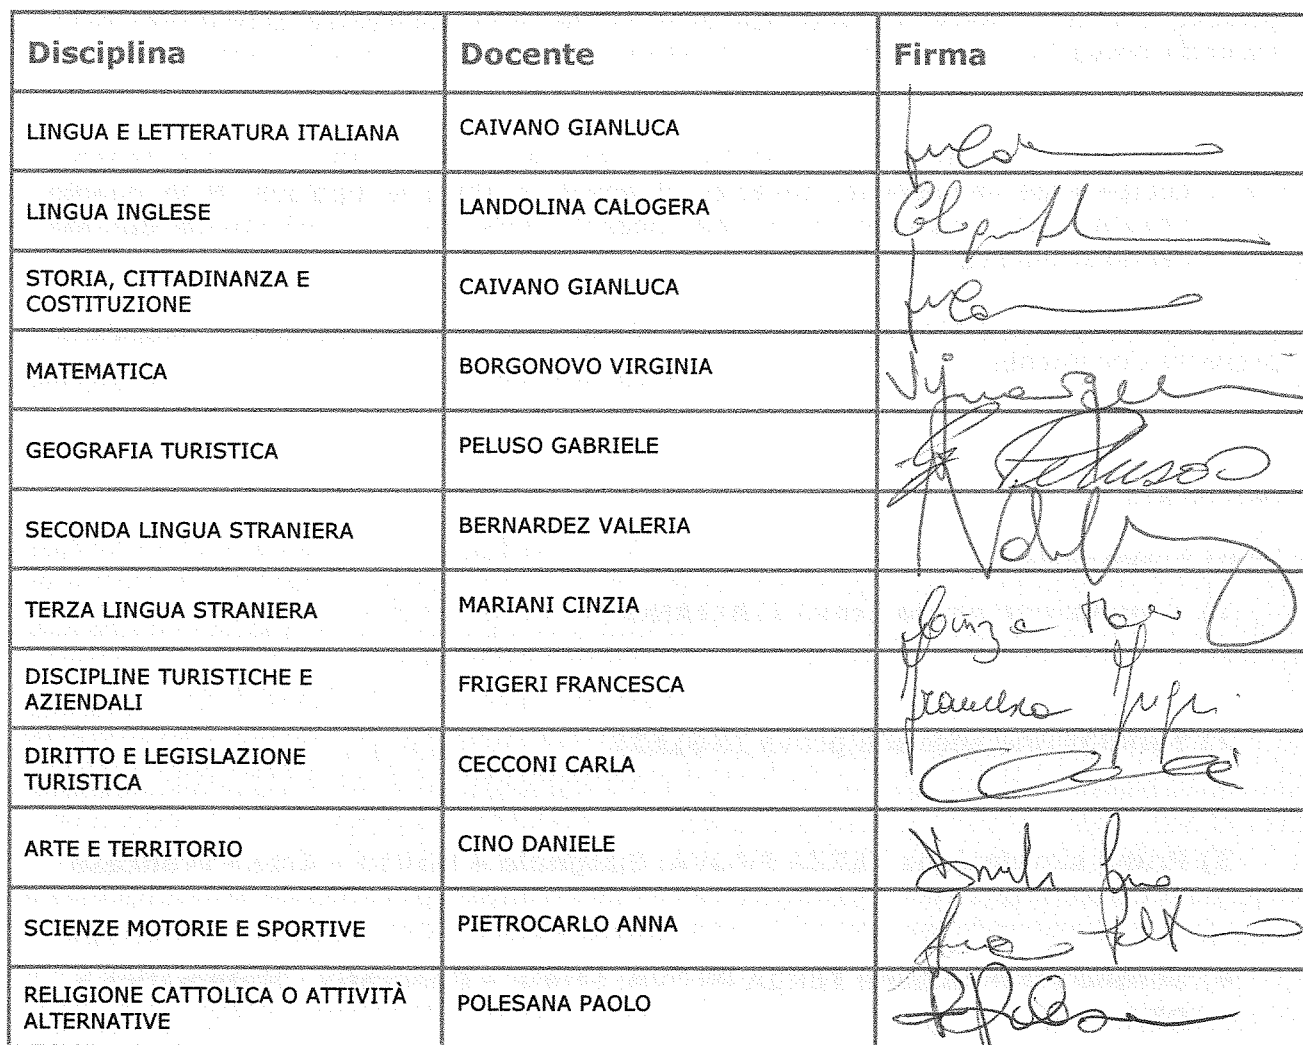 Disciplina Docente Firma
LINGUA E LETTERATURA ITALIANA CAIVANO GIANLUCA
LINGUA INGLESE LANDOLINA CALOGERA
STORIA, CITTADINANZA E
COSTITUZIONE CAIVANO GIANLUCA
MATEMATICA BORGONOVO VIRGINIA
GEOGRAFIA TURISTICA PELUSO GABRIELE Peluso
SECONDA LINGUA STRANIERA BERNARDEZ VALERIA
TERZA LINGUA STRANIERA MARIANI CINZIA
DISCIPLINE TURISTICHE E
AZIENDALI FRIGERI FRANCESCA Francesca
DIRITTO E LEGISLAZIONE
TURISTICA CECCONI CARLA
ARTE E TERRITORIO CINO DANIELE
SCIENZE MOTORIE E SPORTIVE PIETROCARLO ANNA
RELIGIONE CATTOLICA O ATTIVITÀ
ALTERNATIVE POLESANA PAOLO